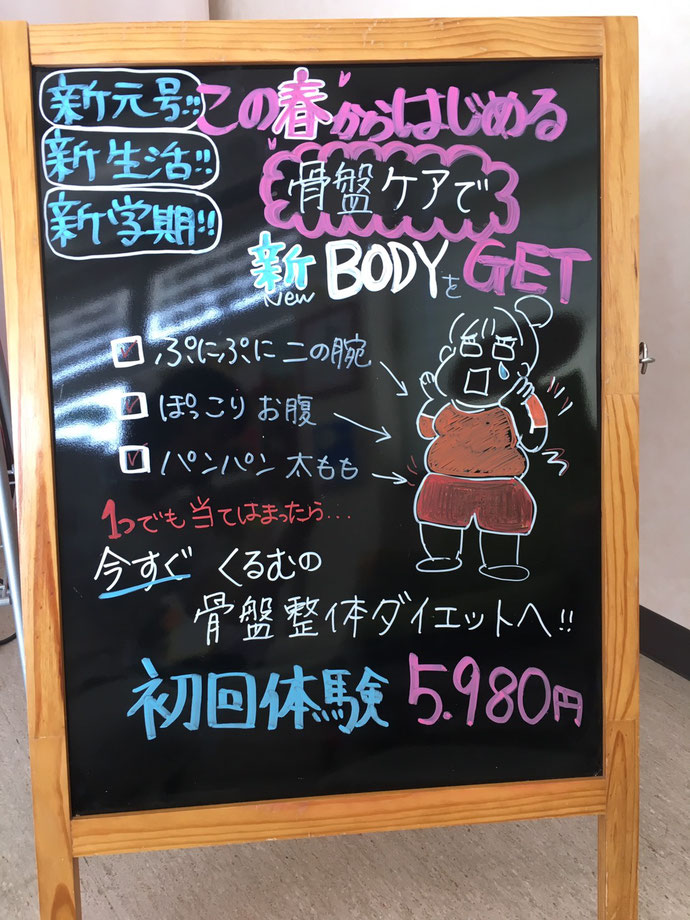 新元号!!
新生活!!
新学期!!
この春からはじめる
骨盤ケアで
新BODYをGET
New
ぷにぷに二の腕
ぽっこりお腹
パンパン太もも
1つでも当てはまったら...
今すぐ くるむの
骨盤整体ダイエットへ!!
初回体験 5.980円